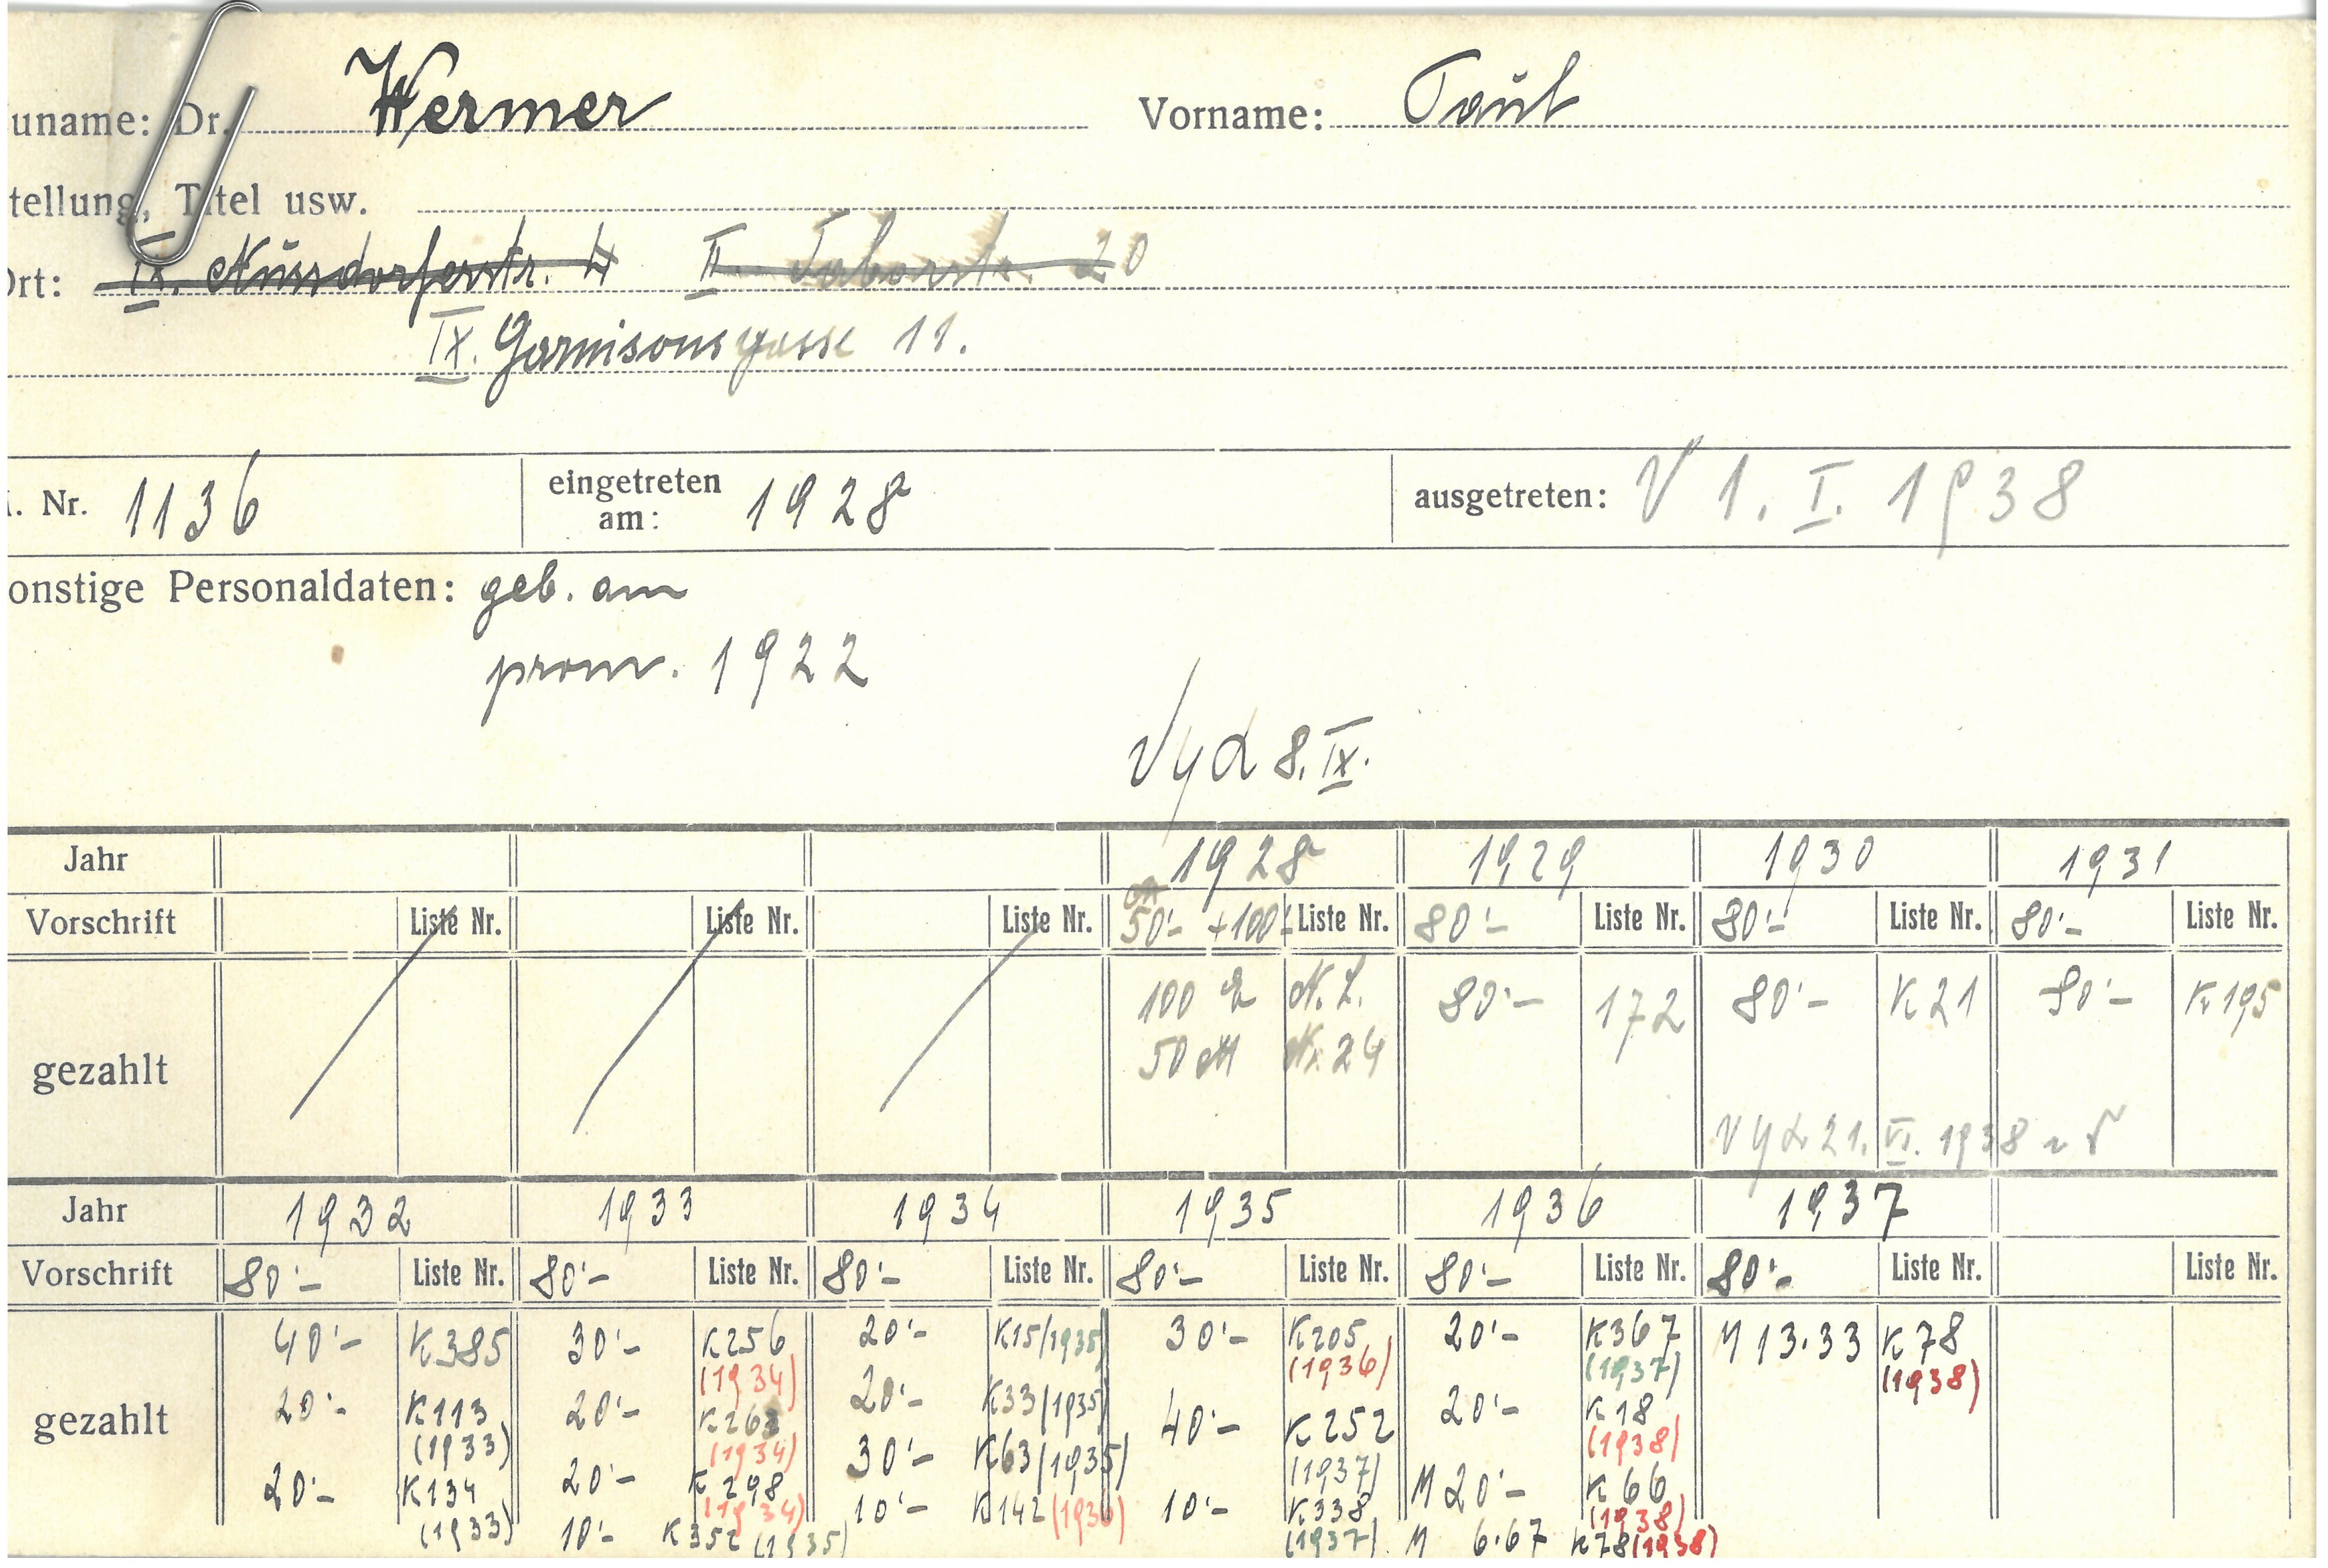 uname: Dr. Wermer Vorname: Paul
tellung, Titel usw.
Ort: IX. Nussdorferstr. 4 II. Taborstr. 20
IX. Garnisonsgasse 11.
. Nr. 1136 eingetreten am: 1928 ausgetreten: V 1. I. 1938
onstige Personaldaten: geb. am
prom. 1922
8. IX.
Jahr 1928 1929 1930 1931
Vorschrift Liste Nr. Liste Nr. Liste Nr. 50'- +100'- Liste Nr. 80'- Liste Nr. 80'- Liste Nr. 80'- Liste Nr.
gezahlt 100 N. L. 80'- 172 80'- K 21 80'- K 195
50 M Nr. 24
21. VI. 1938
Jahr 1932 1933 1934 1935 1936 1937
Vorschrift 80'- Liste Nr. 80'- Liste Nr. 80'- Liste Nr. 80'- Liste Nr. 80'- Liste Nr. 80'- Liste Nr. Liste Nr.
gezahlt
40'- K385 30'- K256 20'- K15/1935) 30'- K205 20'- K367 M 13.33 K78
(1934) (1936) (1937) (1938)
20'- K113 20'- K263 20'- K33/1935) 40'- K252 20'- K18
(1933) (1934) 30'- K63/1935) (1937) (1938)
20'- K134 20'- K298 10'- K142 (1936) 10'- K338 M 20'- K66
(1933) (1934) (1937) (1938)
10'- K352 (1935) M 6.67 K78 (1938)